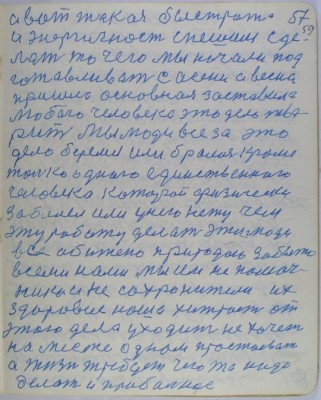 а вот такая быстрота 57
и энергичност спешим сде 59
лат то чего мы начали под
готавливат с осени а весна
пришла основная заставила
любого человека это дело
рит мы люди все за это
дело берёмся или брался кроме
только одного единственного
человека который физически
заболел или у него нету чем
эту работу делат эти люди
все обижено природою забыто
всеми нами мы им не помач
ники и не сохранители их
здоровие наша хитрост от
этого дела уходит не хочет
на месте одном простоеват
а жизн требует чего то надо
делат и прибалное